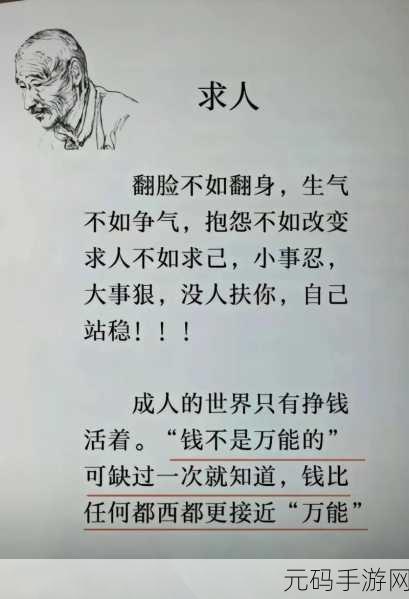 求人
翻脸不如翻身，生气
不如争气，抱怨不如改变
求人不如求己，小事忍，
大事狠，没人扶你，自己
站稳！！！
成人的世界只有挣钱
活着。“钱不是万能的”
可缺过一次就知道，钱比
任何都西都更接近“万能”
元码手游网